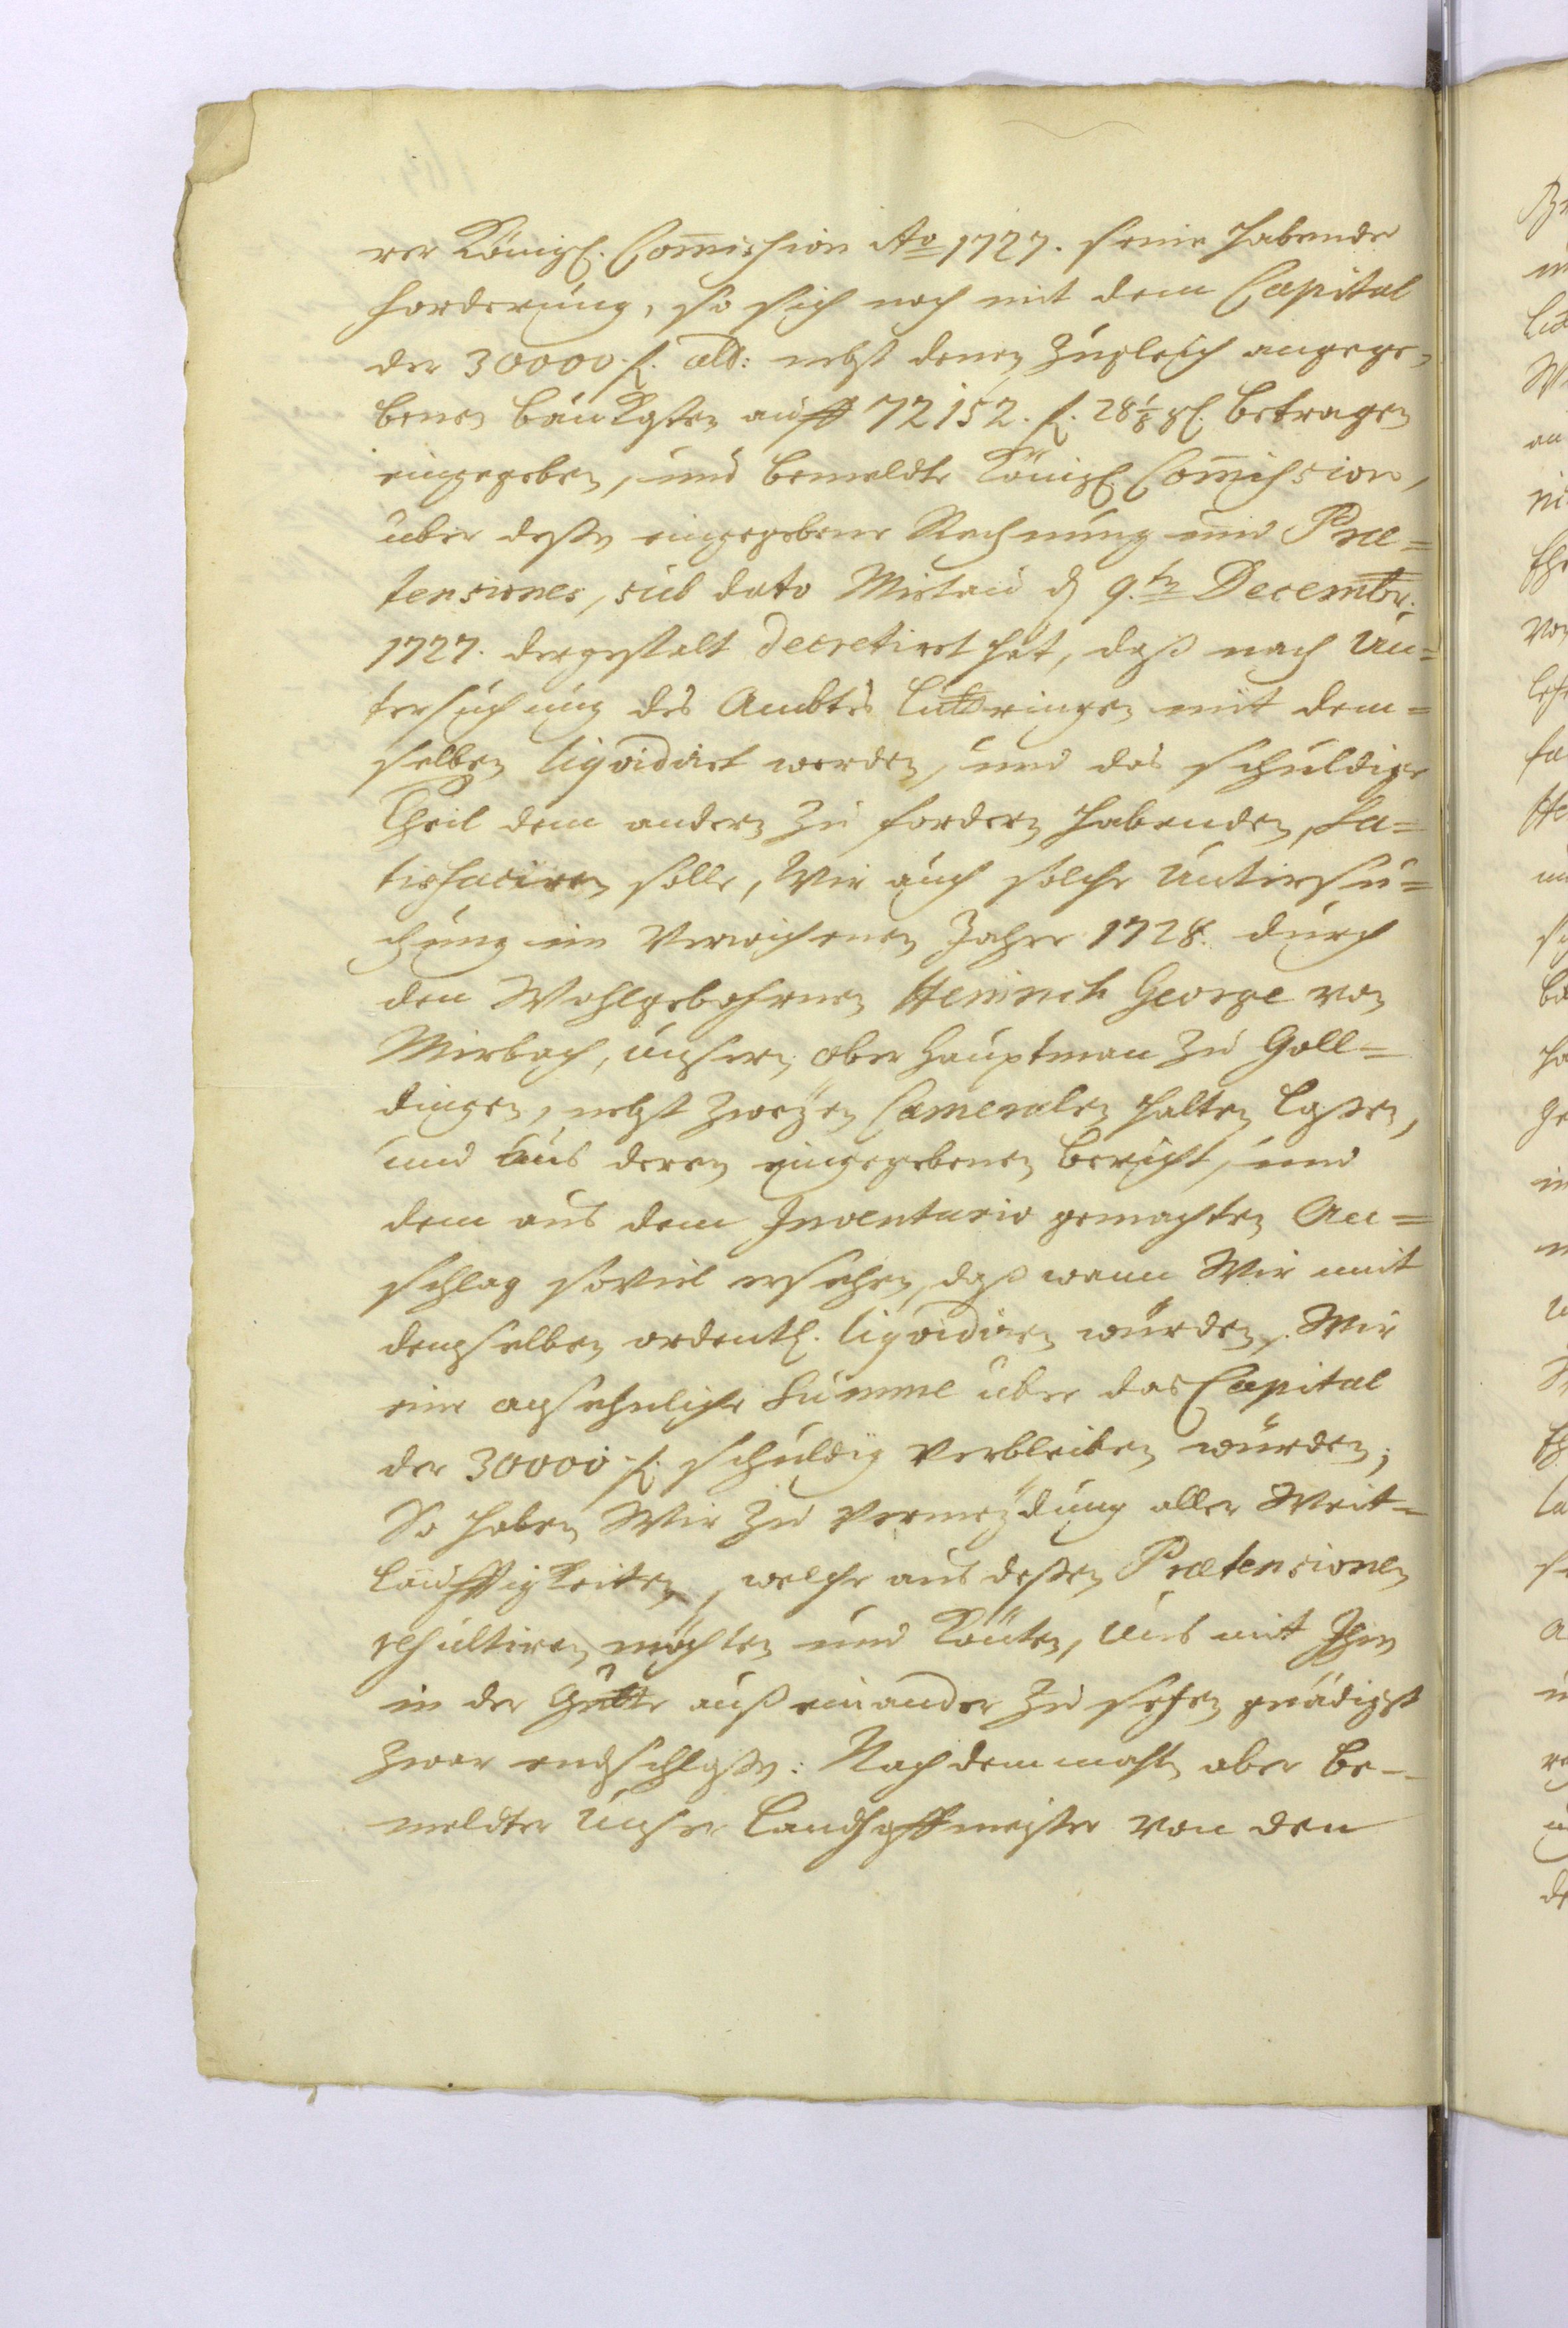 rer Königl. Com̅ission Ao 1727. seine habende
forderung, so sich noch mit dem Capital
der 30000. fl. alb: nebst denen zugleich angege-
benen baukosten auff 72152. fl. 28 1/8 gl. betragen
eingegeben, und bemeldte Königl. Com̅ission,
über deßen eingegebene Rechnung und Præ=
tensiones, sub dato Mietau d 9.tn Decembr:
1727. dergestalt decretiret hat, daß nach Un=
tersuchung des Ambtes Luttringen mit dem=
selben liqvidiret werden, und das schuldige
Theil dem andern zu fordern habenden, Sa=
tisfaciren solle, Wir auch solche Untersu=
chung im verwichenen Jahre 1728. durch
den Wohlgebohrnen Heinrich George von
Mirbach, unsern ober Hauptman zu Goll=
dingen, nebst zweyen Cameralen halten laßen,
und aus deren eingegebenen Bericht, und
dem aus dem Inventario gemachten An=
schlag soviel ersehen, daß wann Wir mit
demselben ordentl. liqvidiren würden, Wir
eine ansehnliche Summe über das Capital
der 30000. fl. schuldig verbleiben würden;
So haben Wir zu vermeydung aller Weit=
läufftigkeiten, welche aus deßen Prætensionen
resultiren möchten und könten, Uns mit Ihm
in der Gütte auß einander zu setzen gnädigst
zwar entschloßen: Nachdemmahln aber be-
meldter Unser Landhoffmeister von den